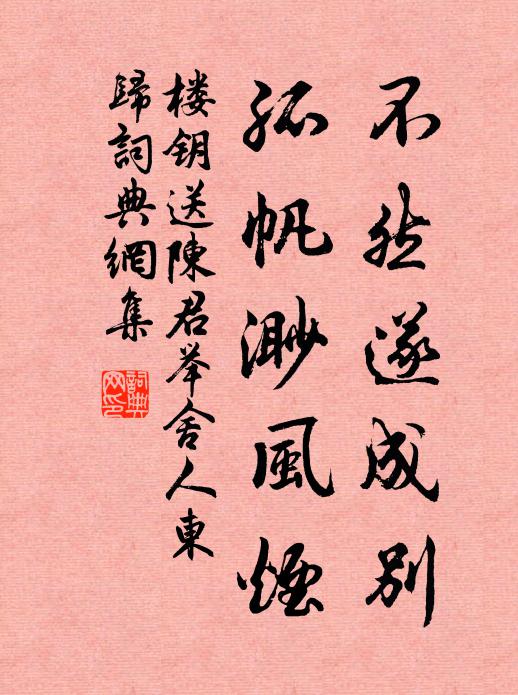 不然遂成别
孤帆渺風煙
楼钥送陳君举舍人東
歸詞典網集
詞典
网印